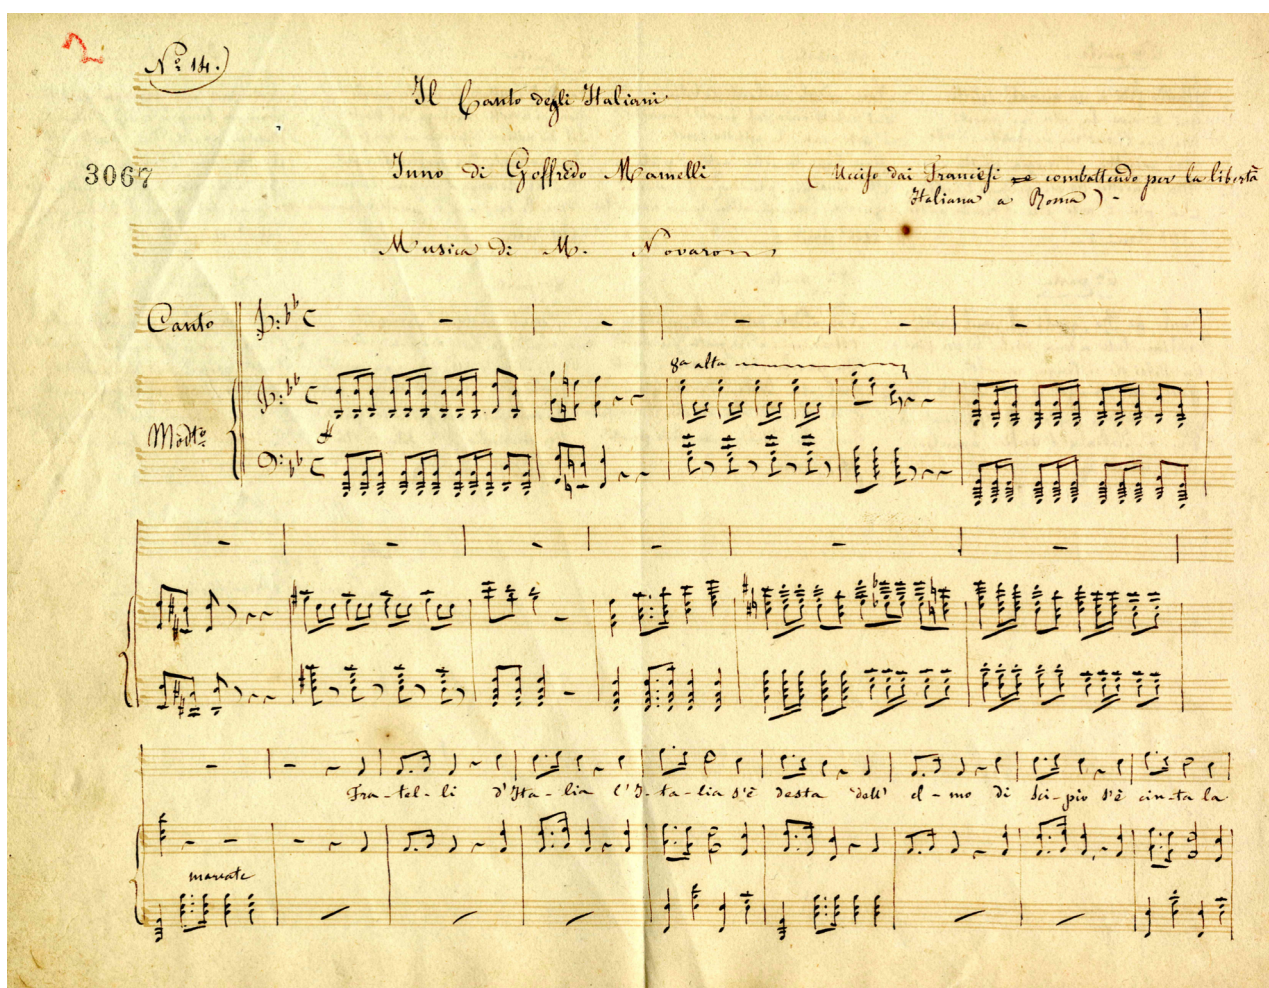 2
Nº 14.)
Il Canto degli Italiani
3067
Inno di Goffredo Mamelli (Ucciso dai Francesi combattendo per la libertà
Italiana a Roma) -
Musica di M. Novaro
Canto
8ª alta
Modto
ff
Fra-tel-li d'Ita-lia l'I-ta-lia s'è desta dell' el-mo di Sci-pio s'è cin-ta la
marcate